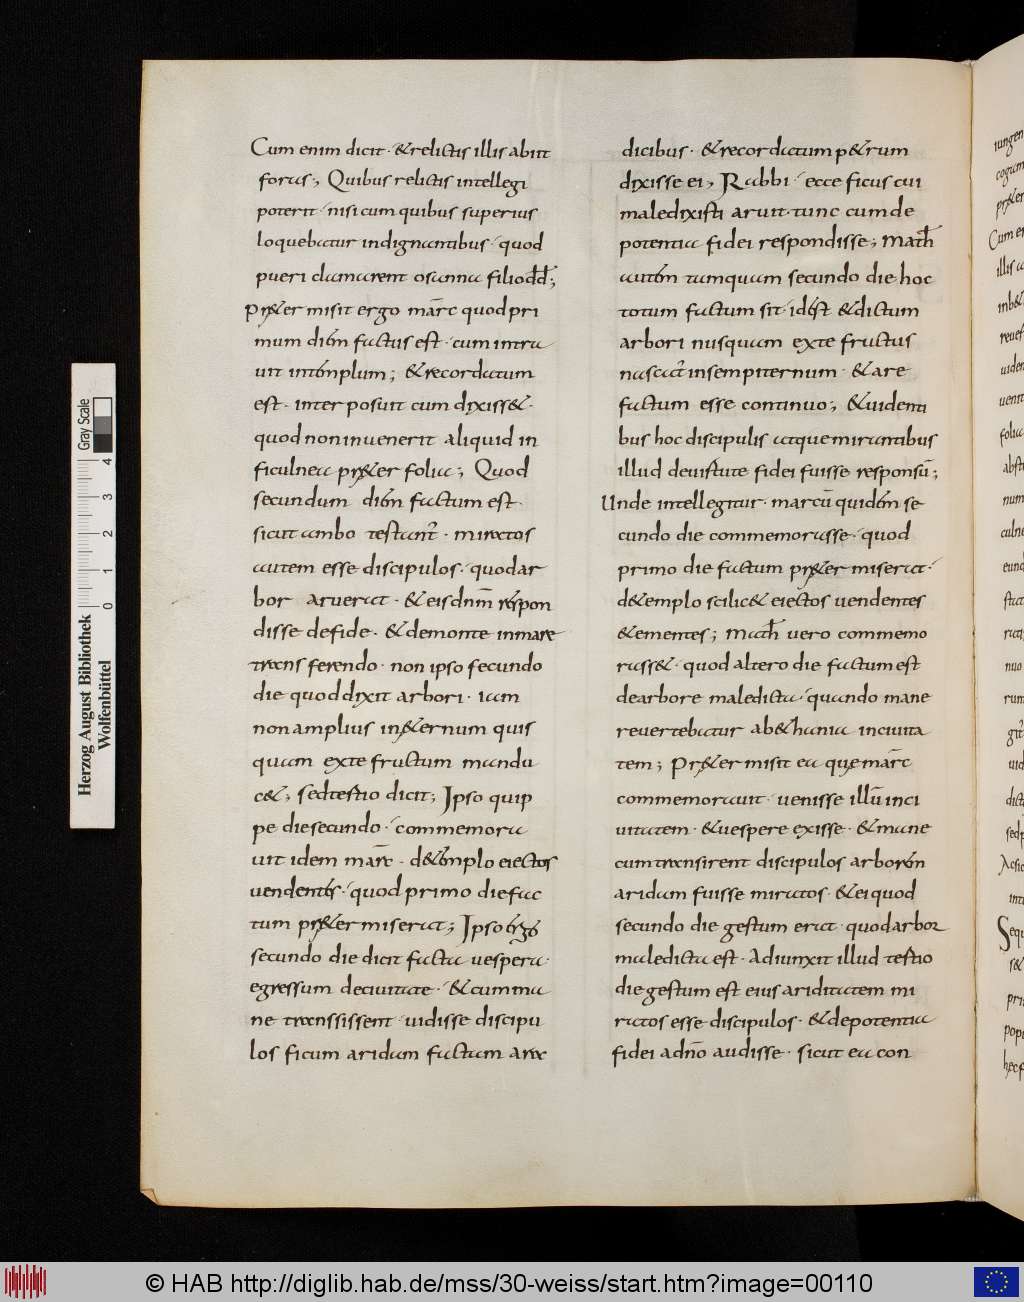 Cum enim dicit · & relictis illis abiit
foras ; Quibus relictis intellegi
poterit · nisi cum quibus superius
loquebatur indignantibus · quod
pueri clamarent osanna filio dd̄ ;
Pr&er misit ergo mārc quod pri
mum diēm factus est · cum intra
uit in tēmplum ; & recordatum
est · inter posuit cum dixiss& ·
quod non inuenerit aliquid in
ficulnea pr&er folia ; Quod
secundum diēm factum est ·
sicut ambo testant̄ · miratos
autem esse discipulos · quod ar
bor aruerat · & eis dnm̄ respon
disse de fide · & de monte in mare
trans ferendo · non ipso secundo
die quod dixit arbori · iam
non amplius in &ernum quis
quam ex te fructum mandu
c& ; sed tertio dicit ; Ipso quip
pe die secundo · commemora
uit idem mārc · de tēmplo eiectos
uendentes · quod primo die fac
tum pr&er miserat ; Ipso ergo
secundo die dicit facta uespera ·
egressum de ciuitate · & cum ma
ne transsissent · uidisse discipu
los ficum aridam factam a rax
dicibus · & recordatum p&rum
dixisse ei ; Rabbi · ecce ficus cui
maledixisti aruit · tunc cum de
potentia fidei respondisse ; Math̄
autēm tamquam secundo die hoc
totum factum sit · id est & dictum
arbori nusquam ex te fructus
nascat̄ in sempiternum · & are
factum esse continuo ; & uidenti
bus hoc discipulis atque mirantibus
illud de uirtute fidei fuisse responsū ;
Unde intellegitur · marcū quidēm se
cundo die commemorasse · quod
primo die factum pr&er miserat ·
de templo scilic& eiectos uendentes
& ementes ; Math̄ uero commemo
rass& · quod altero die factum est
de arbore maledicta · quando mane
reuertebatur ab &hania in ciuita
tem ; Pr&er misit ea quę mārc
commemorauit · uenisse illū in ci
uitatem · & uespere exisse · & mane
cum transirent discipulos arborēm
aridam fuisse miratos · & ei quod
secundo die gestum erat · quod arbor
maledicta est · Adiunxit illud tertio
die gestum est eius ariditatem mi
ratos esse discipulos · & de potentia
fidei a dnō audisse · sicut ea con
Herzog August Bibliothek
Wolfenbüttel
Gray Scale
0 1 2 3 4
© HAB http://diglib.hab.de/mss/30-weiss/start.htm?image=00110